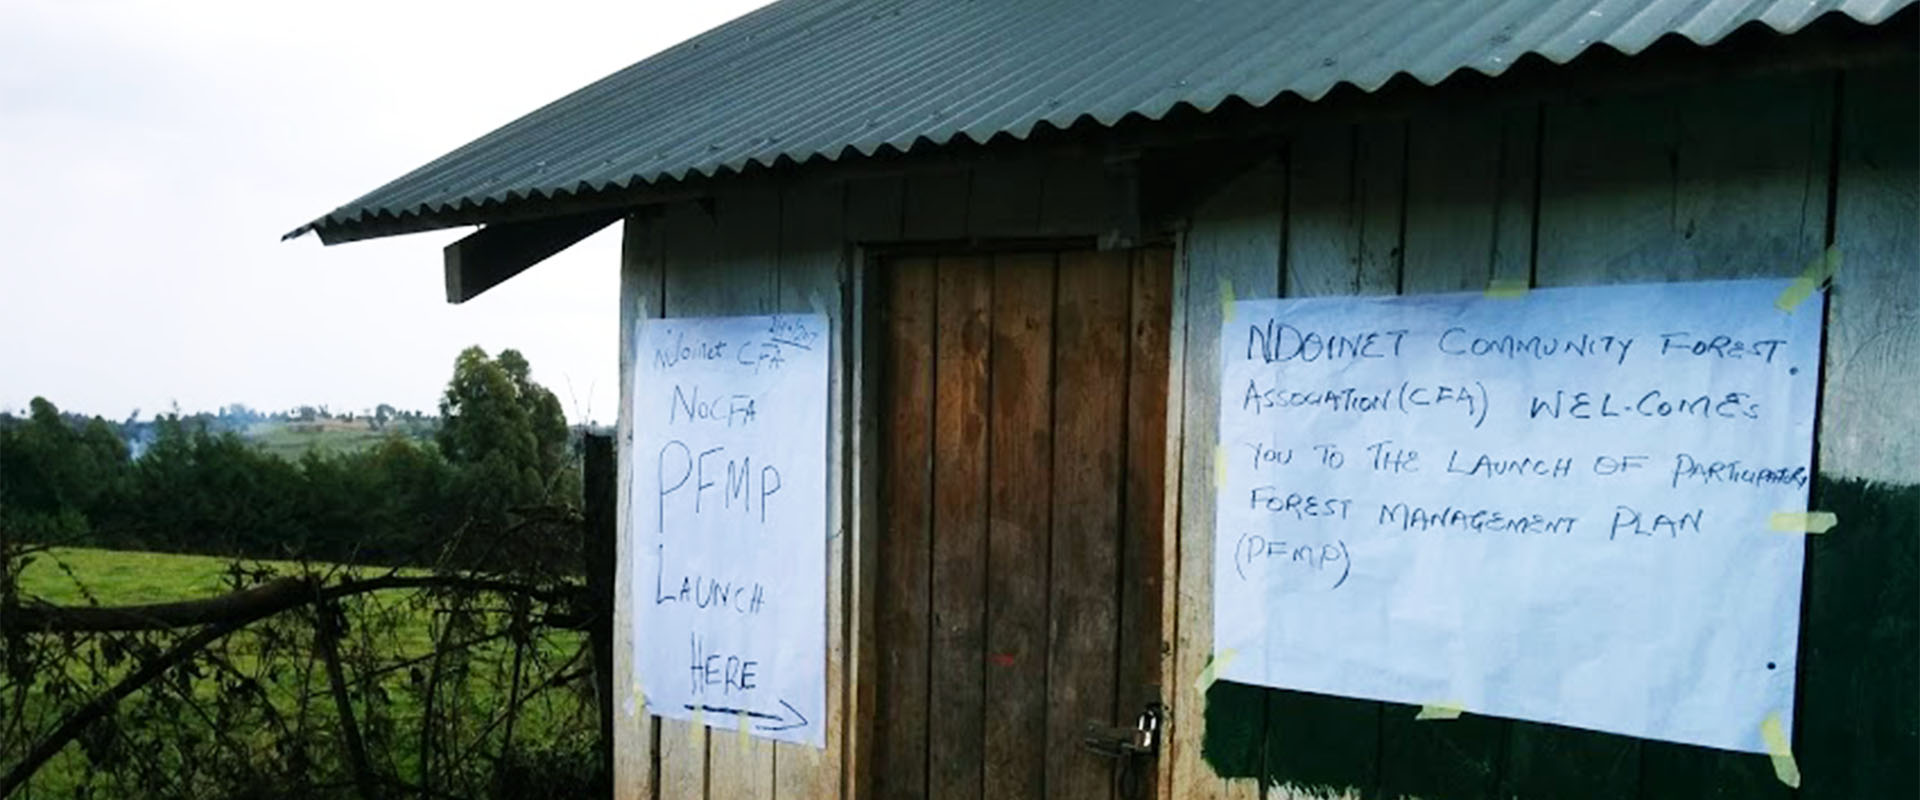 Ndoinet CFA
NOCFA
PFMP
LAUNCH
HERE
NDOINET COMMUNITY FOREST
ASSOCIATION (CFA) WEL-COMES
YOU TO THE LAUNCH OF PARTICIPATORY
FOREST MANAGEMENT PLAN
(PFMP)